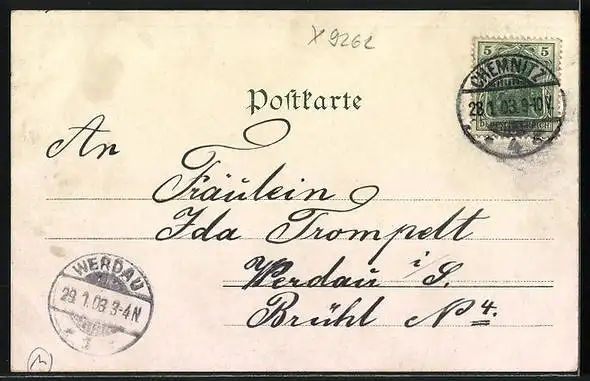 X 9262
5 5
CHEMNITZ
28.1.03.9-10V.
4
Postkarte
An
Fräulein
Ida Trompelt
Werdau i/S.
Brühl No 4.
WERDAU
29.1.03 3-4N
1